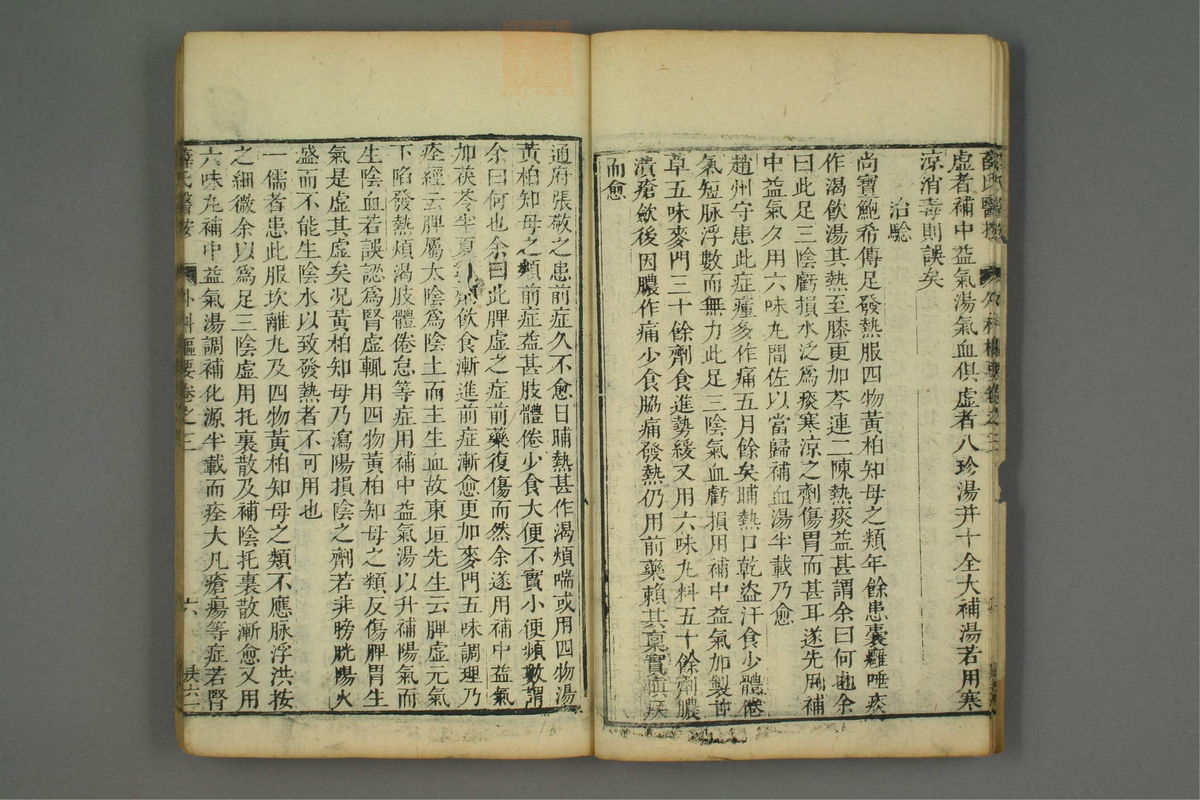 薛氏醫按
外科樞要卷之三
虛者補中益氣湯氣血俱虛者八珍湯并十全大補湯若用寒
涼消毒則誤矣
治驗
尚寶鮑希傳足發熱服四物黃柏知母之類年餘患囊癰唾痰
作渴飲湯其熱至膝更加芩連二陳熱痰益甚謂余曰何也余
曰此足三陰虧損水泛為痰寒涼之劑傷胃而甚耳遂先用補
中益氣夕用六味丸間佐以當歸補血湯半載乃愈
趙州守患此症瘇多作痛五月餘矣晡熱口乾盜汗食少體倦
氣短脉浮數而無力此足三陰氣血虧損用補中益氣加製甘
草五味麥門三十餘劑食進勢緩又用六味丸料五十餘劑膿
潰瘡斂後因膿作痛少食脇痛發熱仍用前藥賴其稟實
而愈
通府張敬之患前症久不愈日晡熱甚作渴煩喘或用四物湯
黃柏知母之類前症益甚肢體倦少食大便不實小便頻數謂
余曰何也余曰此脾虛之症前藥復傷而然余遂用補中益氣
加茯苓半夏 飲食漸進前症漸愈更加麥門五味調理乃
痊經云脾屬太陰為陰土而主生血故東垣先生云脾虛元氣
下陷發熱煩渴肢體倦怠等症用補中益氣湯以升補陽氣而
生陰血若誤認為腎虛輒用四物黃柏知母之類反傷脾胃生
氣是虛其虛矣况黃柏知母乃瀉陽損陰之劑若非膀胱陽火
盛而不能生陰水以致發熱者不可用也
一儒者患此服坎離丸及四物黃柏知母之類不應脉浮洪按
之細微余以為足三陰虛用托裏散及補陰托裏散漸愈又用
六味丸補中益氣湯調補化源半載而痊大凡瘡瘍等症若腎
薛氏醫按
外科樞要卷之三
六